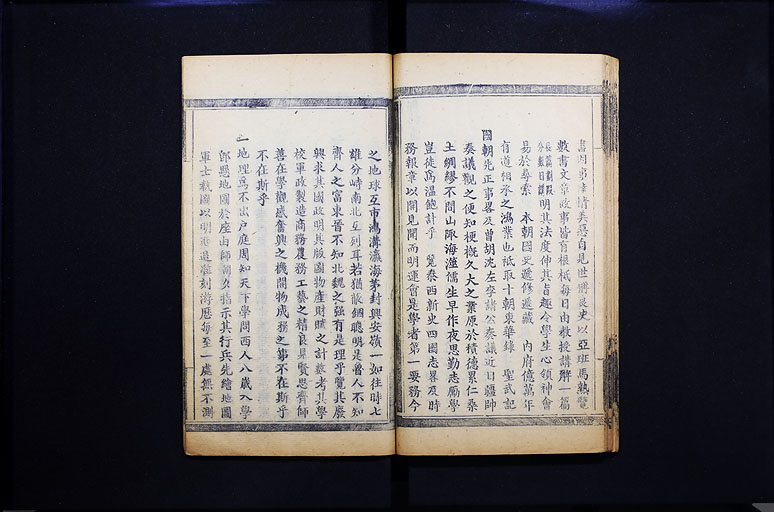 書因事章情美惡自見世稱良史以亞班馬熟覽
數書文章政事皆有根柢每日由教授講解一篇
長篇劃段分數日課明其法度伸其旨趣令學生心領神會
易於尋索 本朝國史遞修遞藏 內府億萬年
有道相承之鴻業也祗取十朝東華錄 聖武記
國朝先正事畧及曾胡沈左李諸公奏議近日疆帥
奏議觀之便知梗概久大之業原於積德累仁桑
土綢繆不問山陬海澨儒生早作夜思勤志厲學
豈徒為溫飽計乎 覽泰西新史四國志畧及時
務報章以開見聞而明運會是學者第一要務今
之地球互市鴻溝瀛海茅封興安嶺一如往時七
雄分峙南北互列耳若猶故錮聰明是魯人不知
齊人之富東晉不知北魏之强有是理乎覽其廢
興求其國政明其版圖物產財賦之計數考其學
校軍政製造商務農務工藝之精良見賢思齊師
善在學觀感奮興之機開物成務之事不在斯乎
不在斯乎
一地理為不出戶庭周知天下學問西人八歲入學
即懸地圖於座由師朝夕指示其行兵先繪地圖
軍士執圖以明進退准刻游歷每至一處無不測